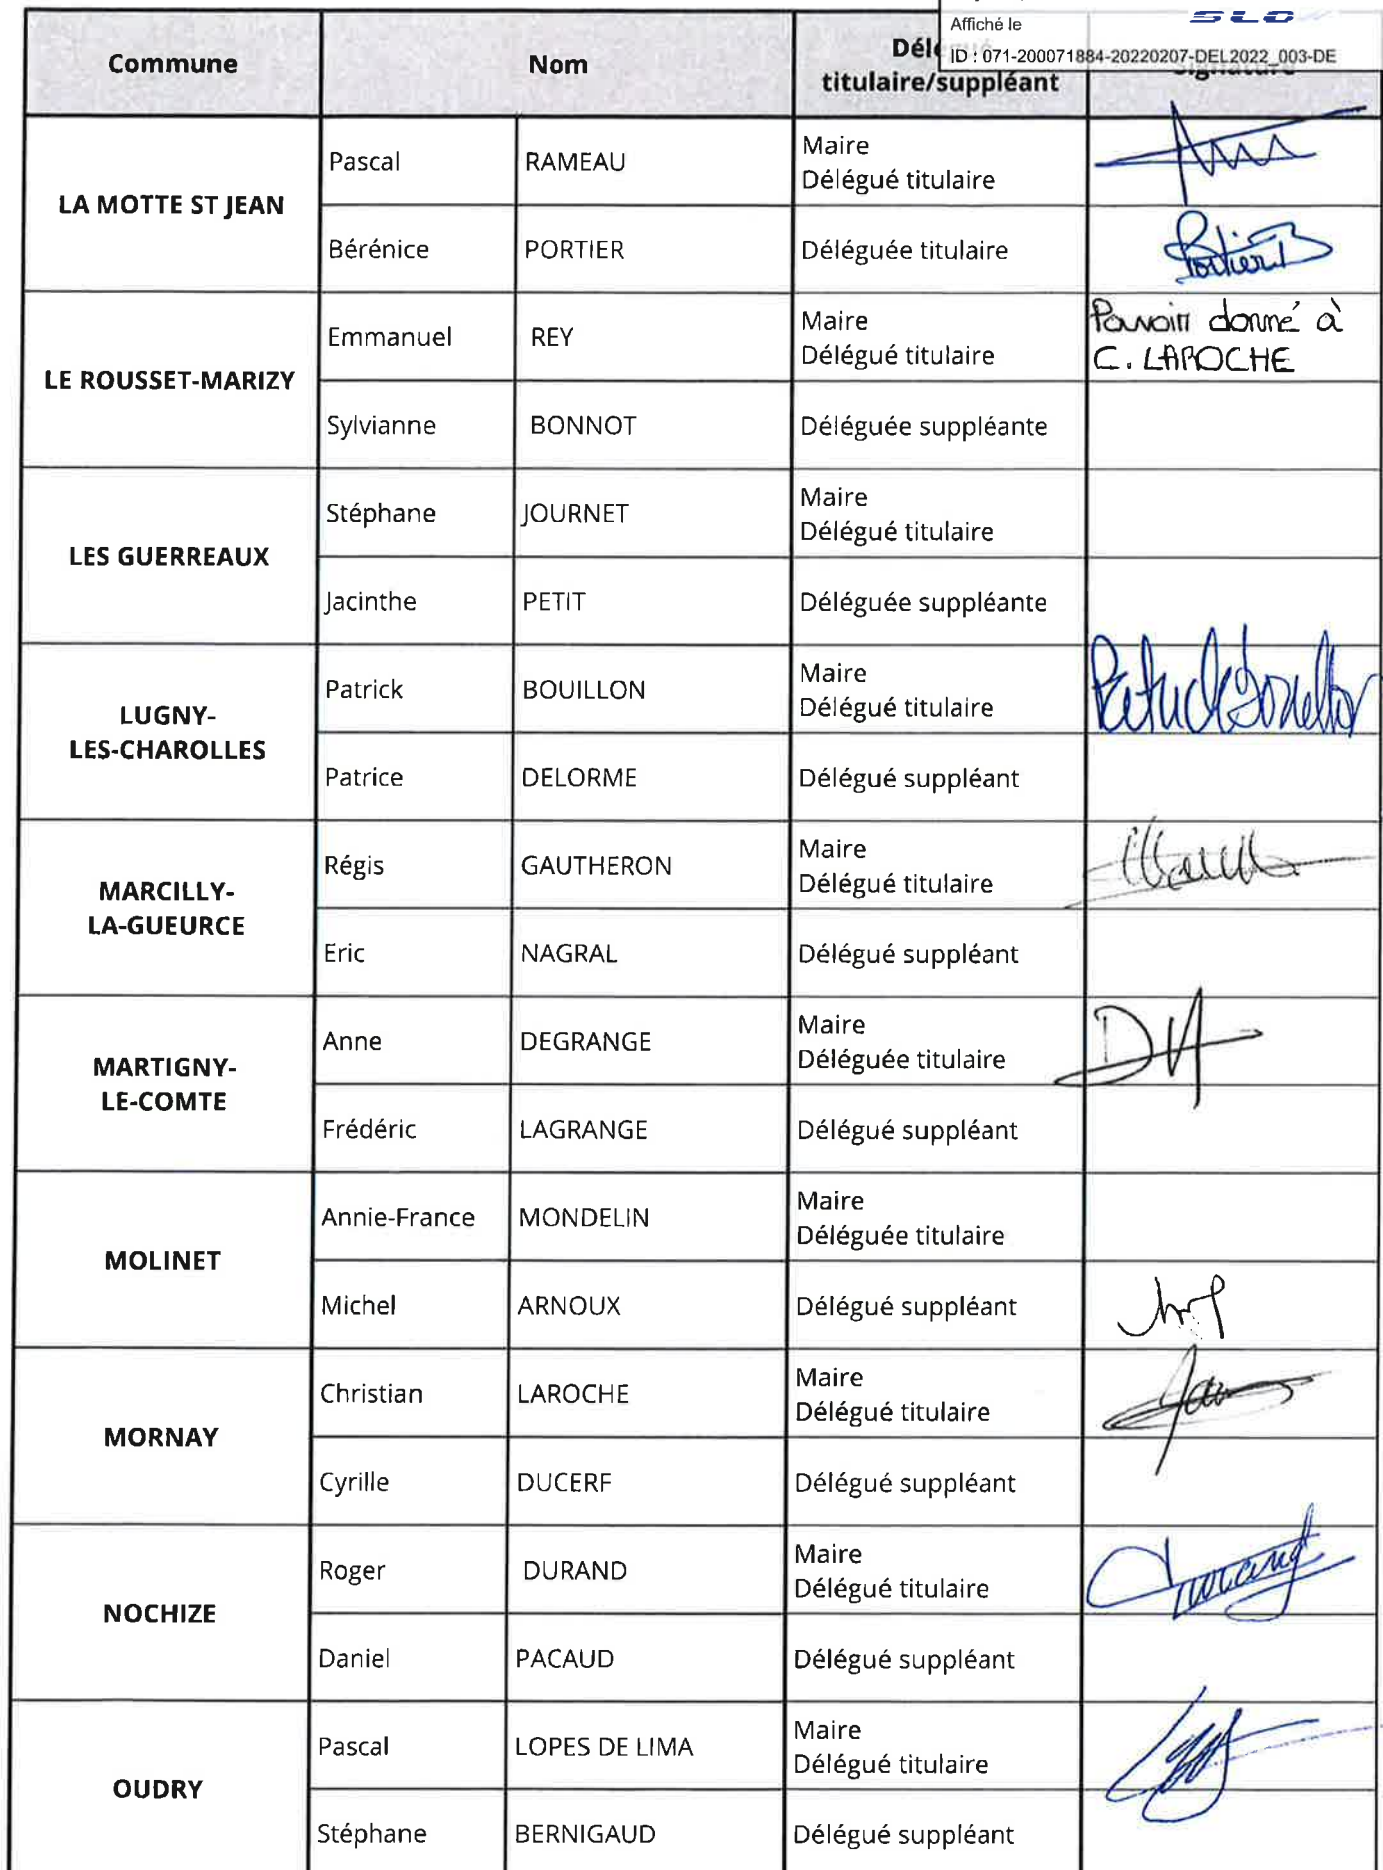 Affiché le
SLO
ID : 071-200071884-20220207-DEL2022_003-DE
Commune Nom Délégué titulaire/suppléant Signature
LA MOTTE ST JEAN
Pascal RAMEAU Maire
Délégué titulaire
Bérénice PORTIER Déléguée titulaire PortierB
LE ROUSSET-MARIZY
Emmanuel REY Maire
Délégué titulaire
Pouvoir donné à
C. LAROCHE
Sylvianne BONNOT Déléguée suppléante
LES GUERREAUX
Stéphane JOURNET Maire
Délégué titulaire
Jacinthe PETIT Déléguée suppléante
LUGNY-
LES-CHAROLLES
Patrick BOUILLON Maire
Délégué titulaire
Patrice DELORME Délégué suppléant
MARCILLY-
LA-GUEURCE
Régis GAUTHERON Maire
Délégué titulaire
Eric NAGRAL Délégué suppléant
MARTIGNY-
LE-COMTE
Anne DEGRANGE Maire
Déléguée titulaire
Frédéric LAGRANGE Délégué suppléant
MOLINET
Annie-France MONDELIN Maire
Déléguée titulaire
Michel ARNOUX Délégué suppléant
MORNAY
Christian LAROCHE Maire
Délégué titulaire
Cyrille DUCERF Délégué suppléant
NOCHIZE
Roger DURAND Maire
Délégué titulaire
Daniel PACAUD Délégué suppléant
OUDRY
Pascal LOPES DE LIMA Maire
Délégué titulaire
Stéphane BERNIGAUD Délégué suppléant